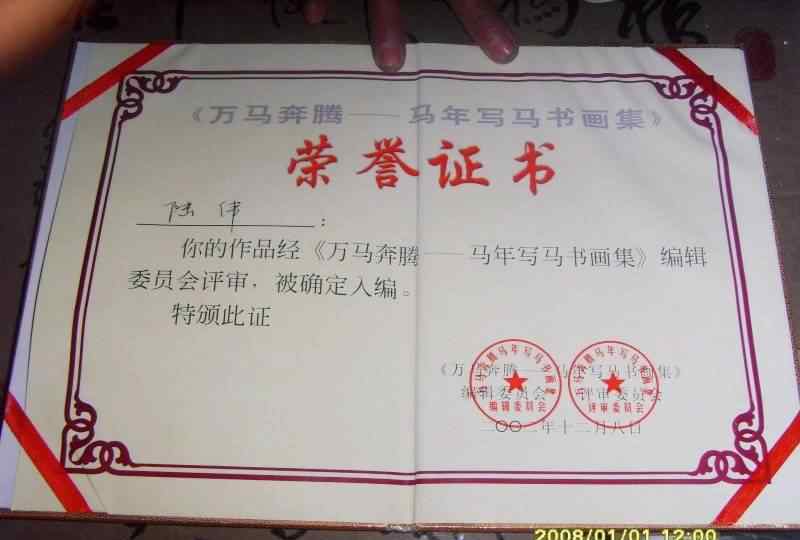 《万马奔腾——马年写马书画集》
荣誉证书
陆伟：
你的作品经《万马奔腾——马年写马书画集》编辑
委员会评审，被确定入编。
特颁此证
《万马奔腾——马年写马书画集》
编辑委员会 评审委员会
二〇〇二年十二月八日
万马奔腾马年写马书画集
编辑委员会
万马奔腾马年写马书画集
评审委员会
2008/01/01 12:00